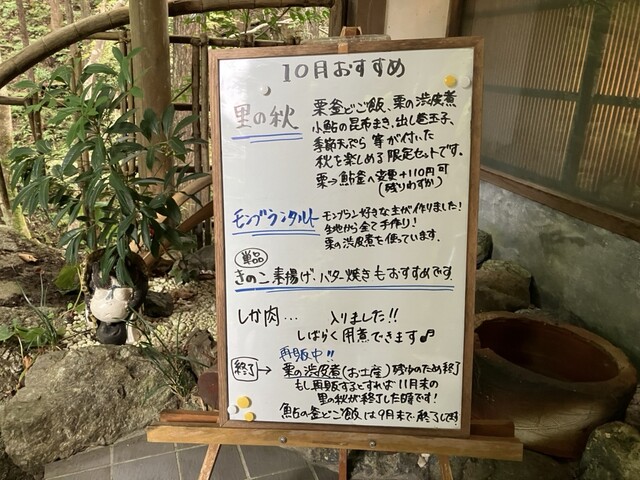 10月おすすめ
里の秋
栗釜どご飯、栗の渋皮煮
小鮎の昆布まき、出し巻玉子、
季節天ぷら 等が付いた
秋を楽しめる限定セットです。
栗→鮎釜へ変更+110円可
(残りわずか)
モンブランタルト
モンブラン好きな主が作りました!
生地から全て手作り!
栗の渋皮煮を使っています。
単品
きのこ素揚げ・バター焼きもおすすめです
しか肉… 入りました!!
しばらく用意できます♪
再販中!!
終了→
栗の渋皮煮(お土産)残少のため終了
もし再販するとすれば11月末の
里の秋が終了した時です!
鮎の釜どご飯は9月末で終了してます